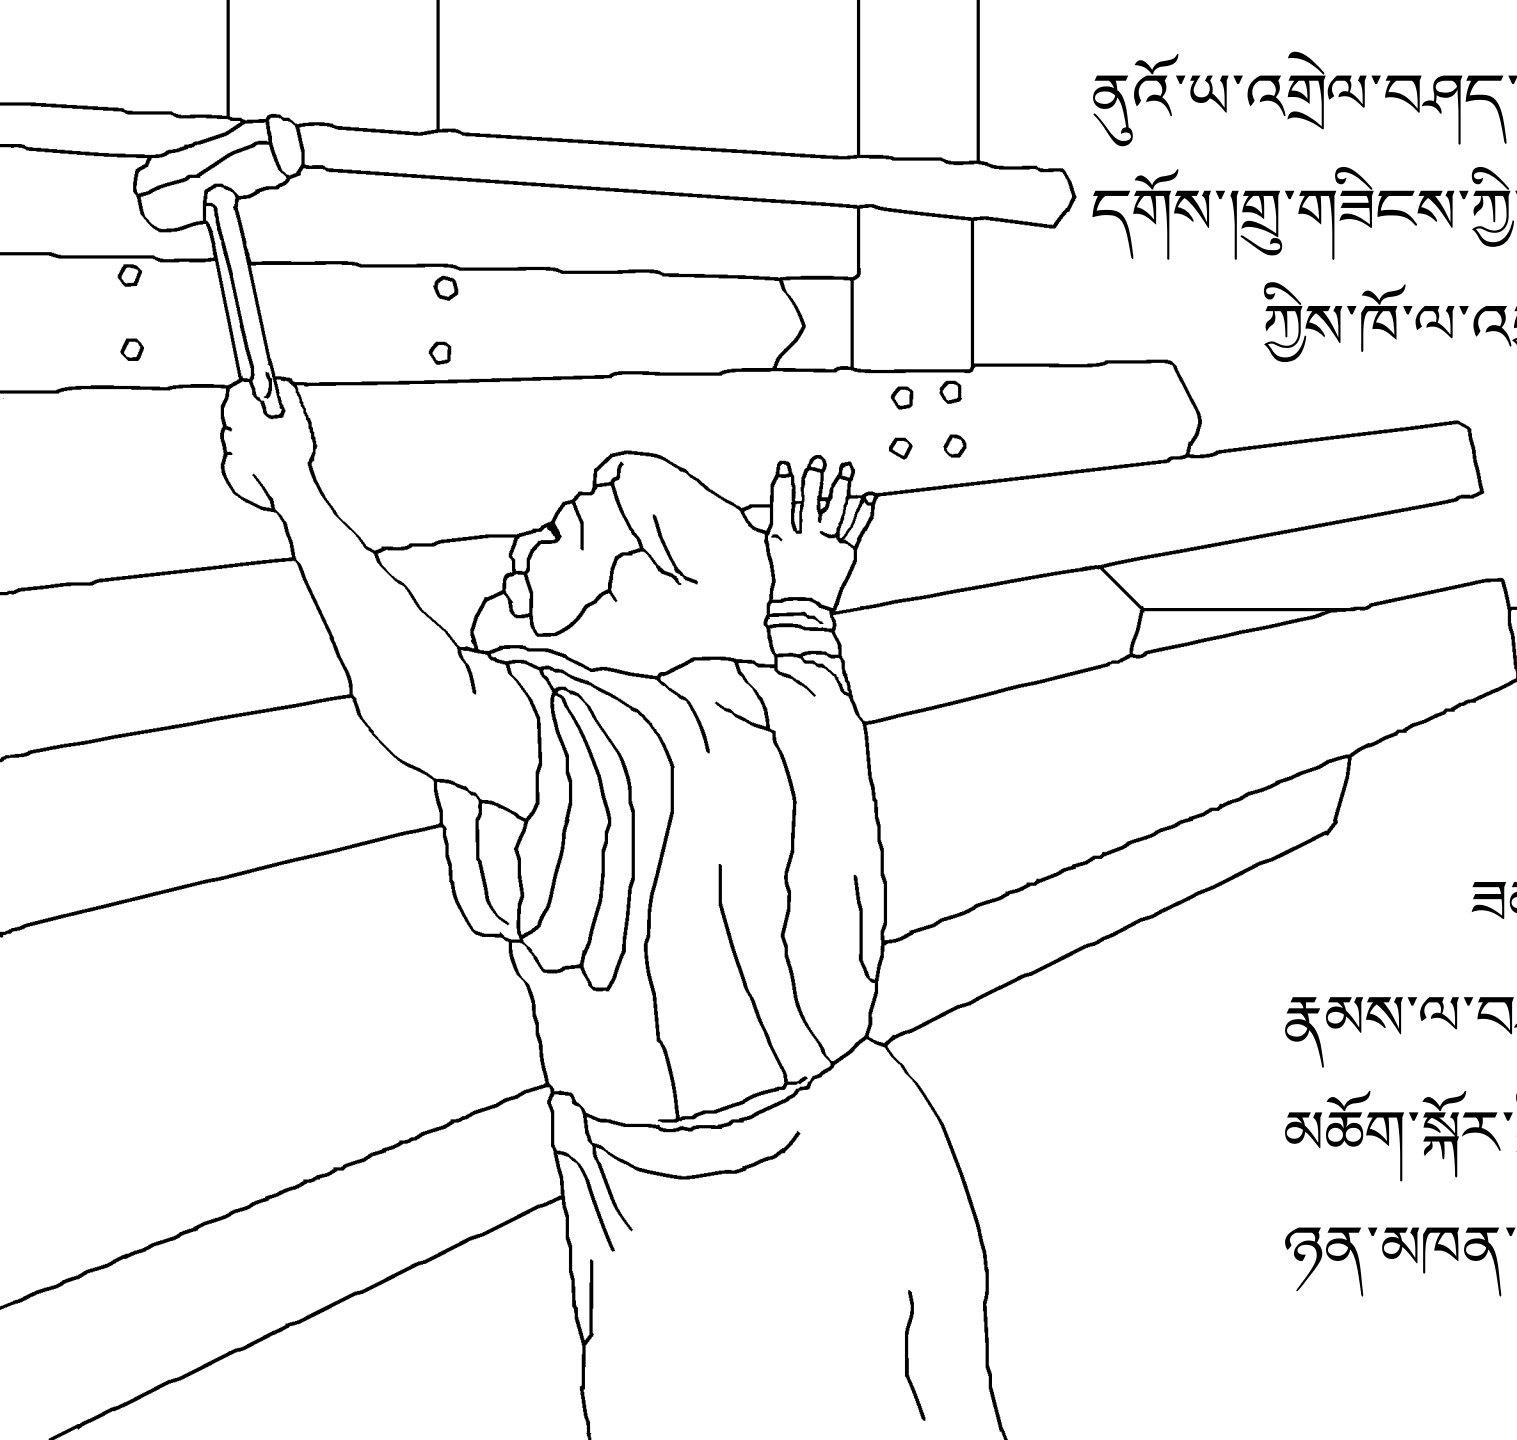 ནུའོ་ཡ་འགྲེལ་བཤད་
དགོས་།གྲུ་གཟིངས་ཀྱི་
ཀྱིས་ཁོ་ལ་
རྣམས་ལ་
མཆོག་སྐོར་
ཉན་མཁན་